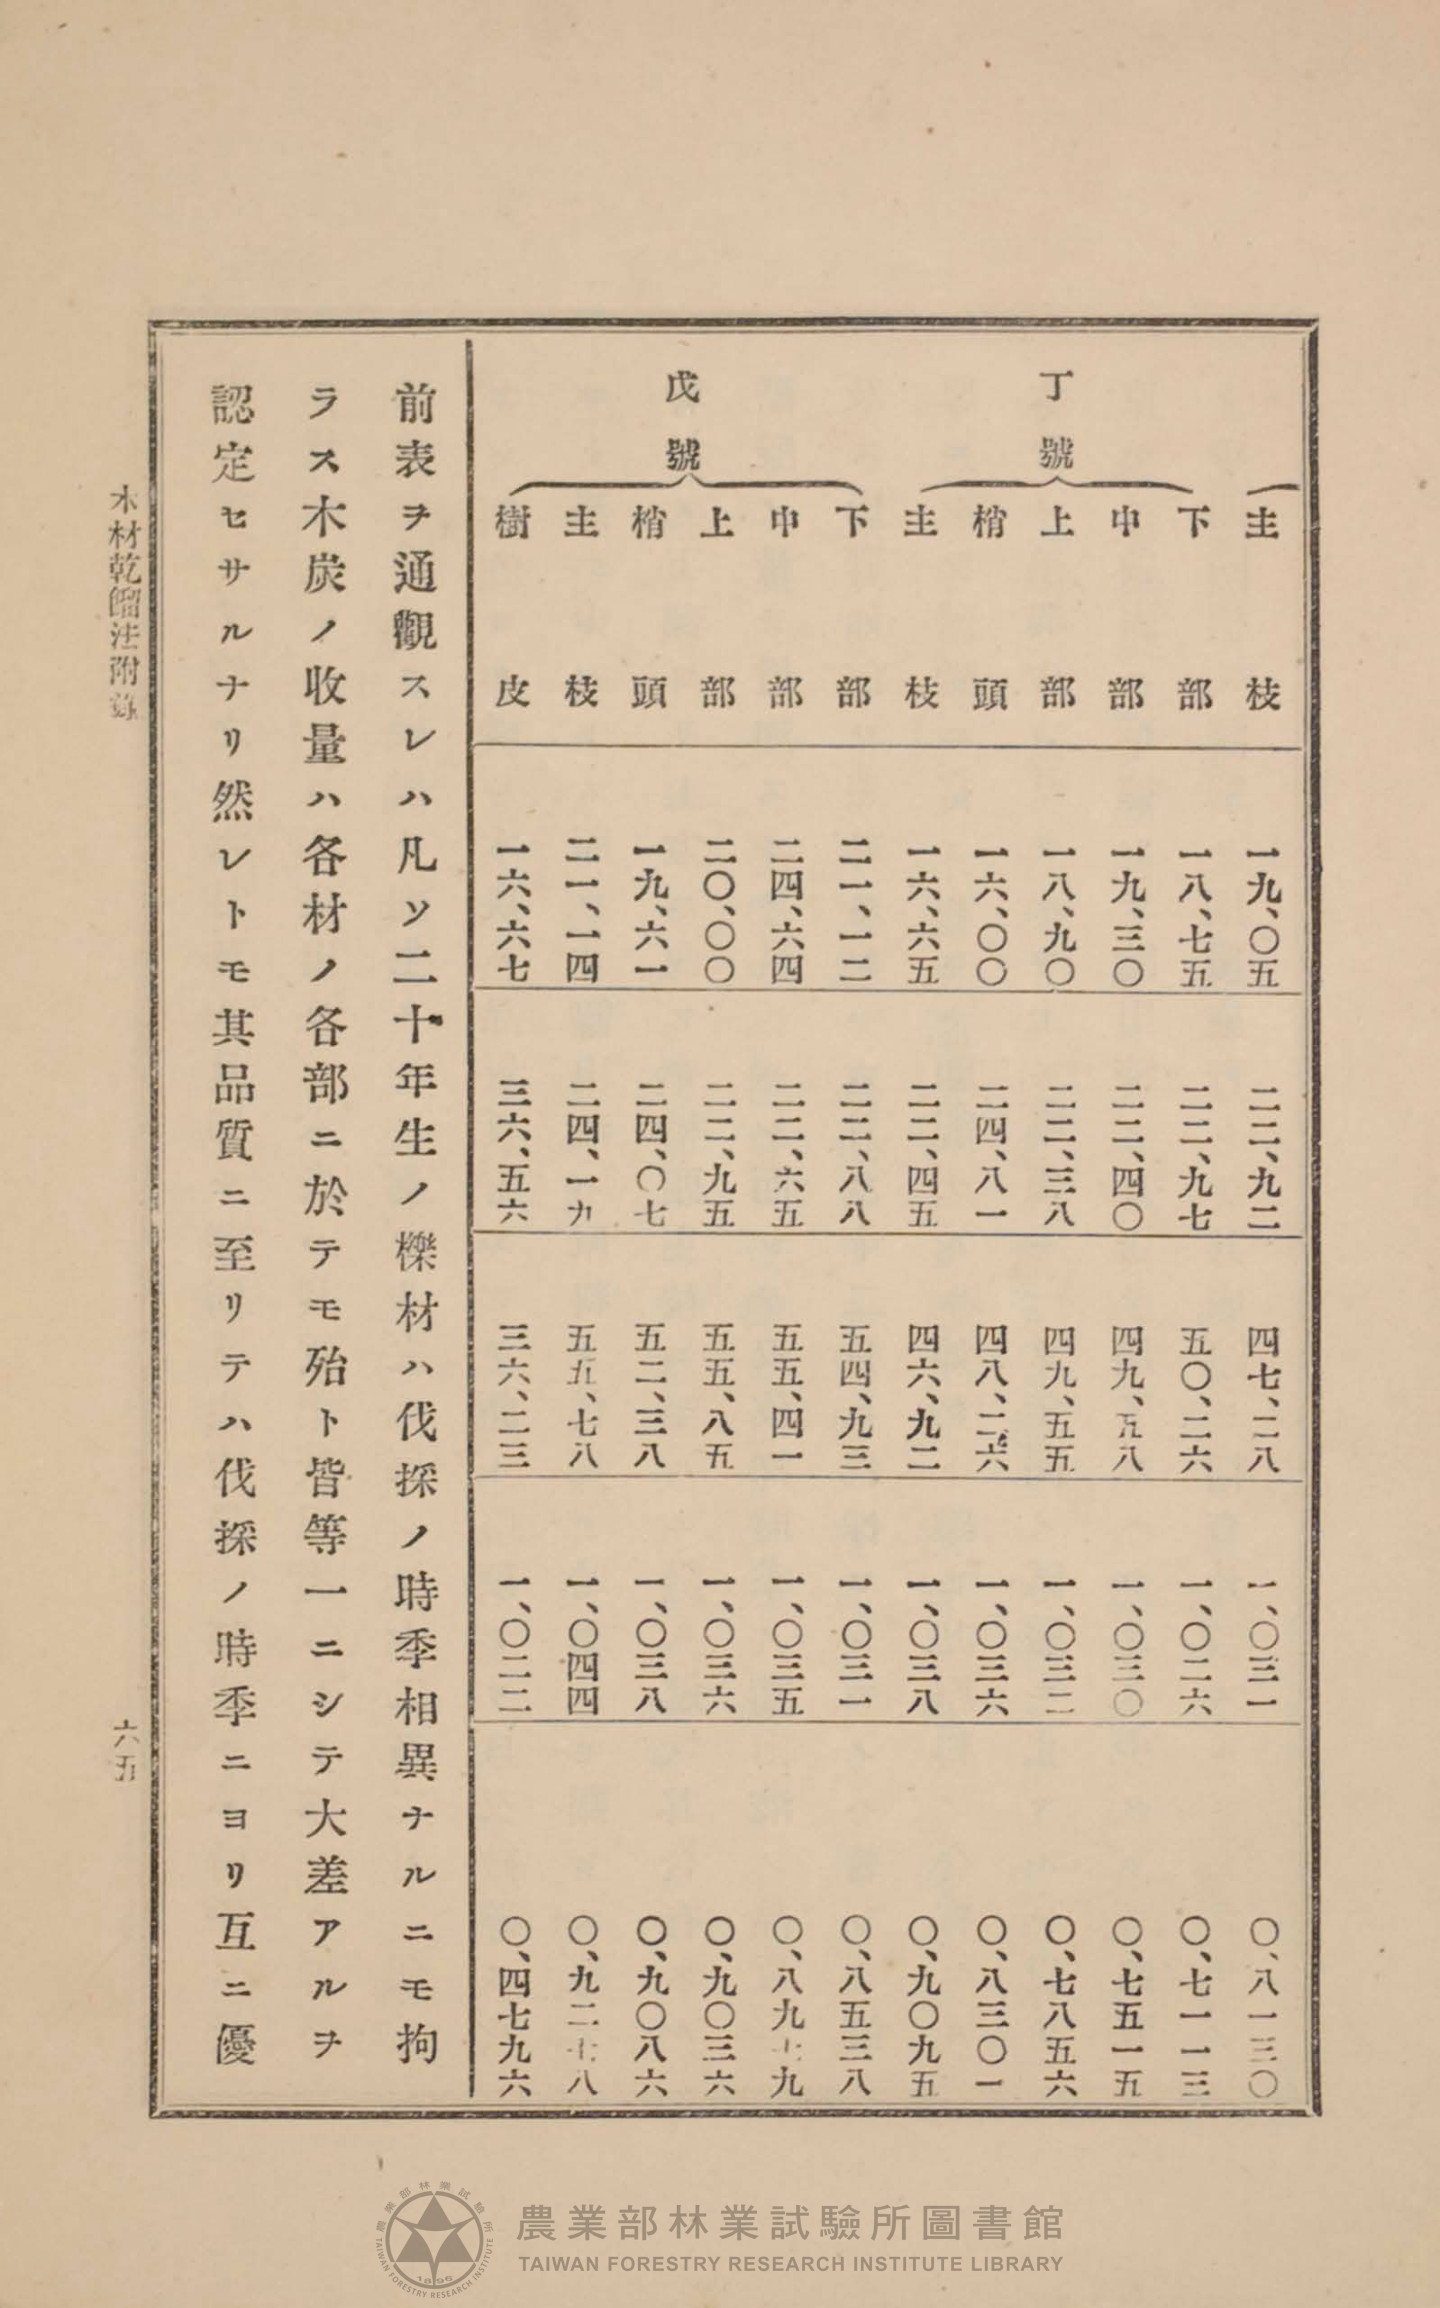 主枝 一九、〇五 二二、九二 四七、二八 一、〇三一 〇、八一三〇
丁號
下部 一八、七五 二二、九七 五〇、二六 一、〇二六 〇、七一一三
中部 一九、三〇 二二、四〇 四九、五八 一、〇三〇 〇、七五一五
上部 一八、九〇 二二、三八 四九、五五 一、〇三二 〇、七八五六
梢頭 一六、〇〇 二四、八一 四八、二六 一、〇三六 〇、八三〇一
主枝 一六、六五 二二、四五 四六、九二 一、〇三八 〇、九〇九五
戊號
下部 二一、一二 二二、八八 五四、九三 一、〇三一 〇、八五三八
中部 二四、六四 二二、六五 五五、四一 一、〇三五 〇、八九七九
上部 二〇、〇〇 二二、九五 五五、八五 一、〇三六 〇、九〇三六
梢頭 一九、六一 二四、〇七 五二、三八 一、〇三八 〇、九〇八六
主枝 二一、一四 二四、一九 五五、七八 一、〇四四 〇、九二七八
樹皮 一六、六七 三六、五六 三六、二三 一、〇二二 〇、四七九六
前表ヲ通觀スレハ凡ソ二十年生ノ櫟材ハ伐採ノ時季相異ナルニモ拘
ラス木炭ノ收量ハ各材ノ各部ニ於テモ殆ト皆等一ニシテ大差アルヲ
認定セサルナリ然レトモ其品質ニ至リテハ伐採ノ時季ニヨリ互ニ優
木材乾餾法附錄
六五
農業部林業試驗所圖書館
TAIWAN FORESTRY RESEARCH INSTITUTE LIBRARY
農業部林業試驗所
TAIWAN FORESTRY RESEARCH INSTITUTE
1896